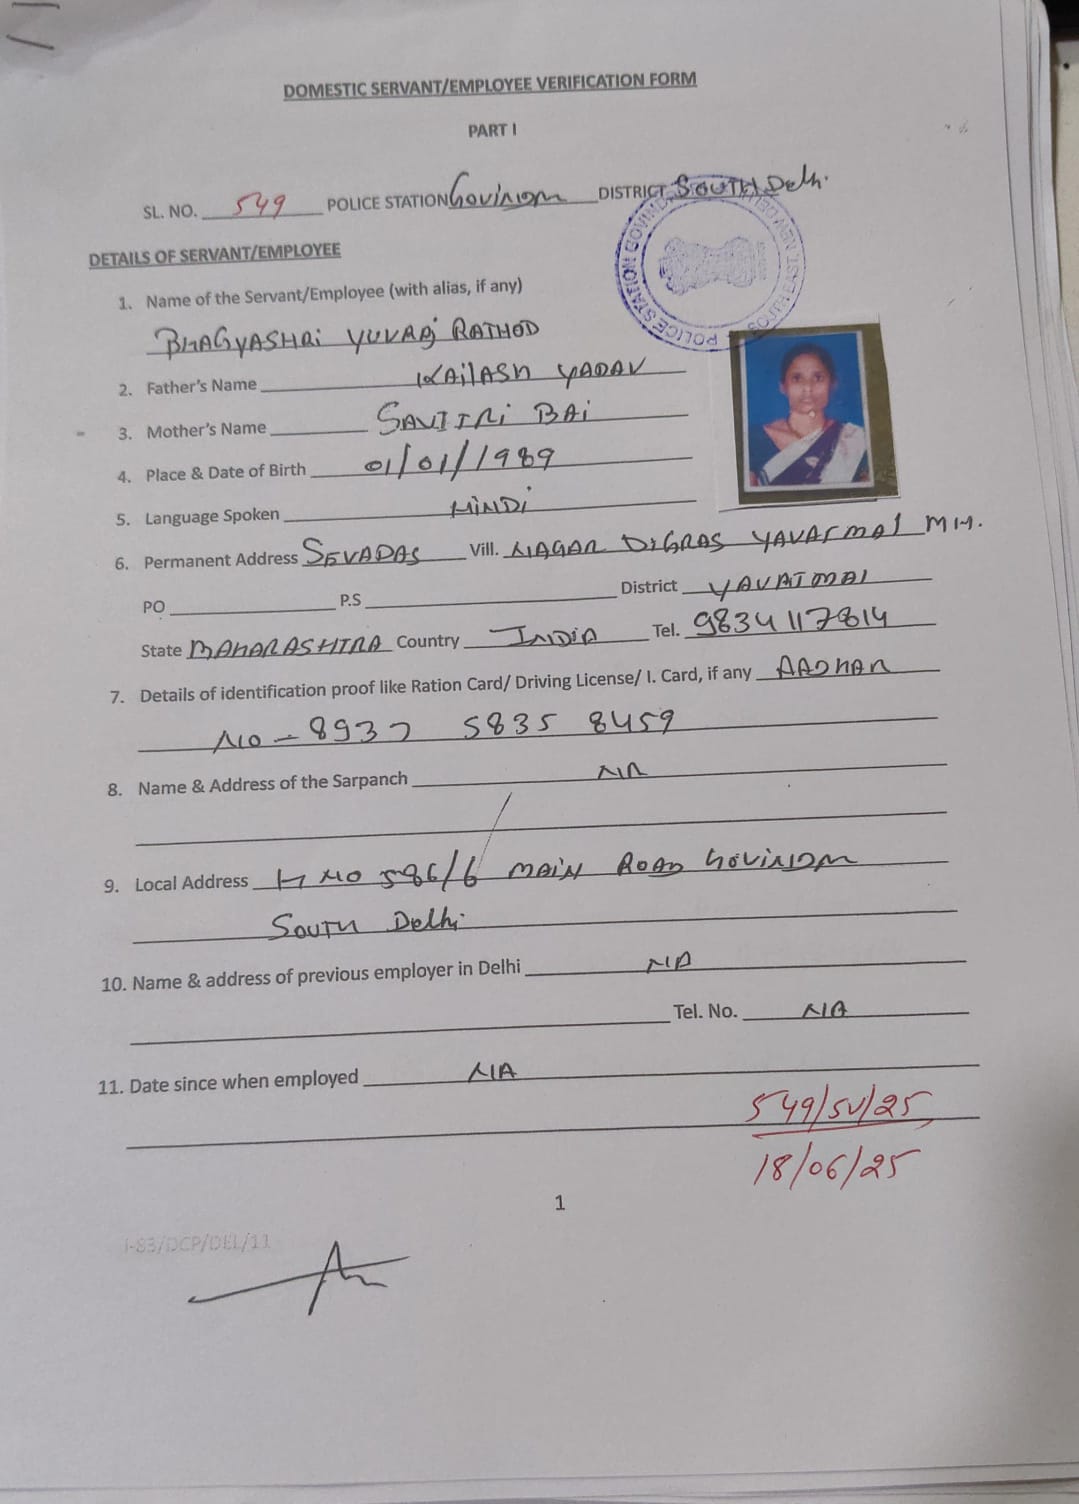 DOMESTIC SERVANT/EMPLOYEE VERIFICATION FORM
PART I
SL. NO. 549 POLICE STATION Govindm DISTRICT SOUTH Delhi
POLICE STATION GOVIND SOUTH EAST NEW DELHI
DETAILS OF SERVANT/EMPLOYEE
1. Name of the Servant/Employee (with alias, if any)
BHAGYASHRi YUVRAJ RATHOD
2. Father's Name KAILASH YADAV
3. Mother's Name SAVITRI BAI
4. Place & Date of Birth 01/01/1989
5. Language Spoken HINDI
6. Permanent Address SEVADAS Vill. NAGAR DIGRAS YAVATMAL MH.
PO P.S District YAVATMAL
State MAHARASHTRA Country INDIA Tel. 9834117814
7. Details of identification proof like Ration Card/ Driving License/ I. Card, if any AADHAR
NO - 8937 5835 8459
8. Name & Address of the Sarpanch NA
9. Local Address H NO 586/6 MAIN ROAD GOVINDM
SOUTH Delhi
10. Name & address of previous employer in Delhi NA
Tel. No. NA
11. Date since when employed NA
549/SV/25
18/06/25
1
I-83/DCP/DEL/11